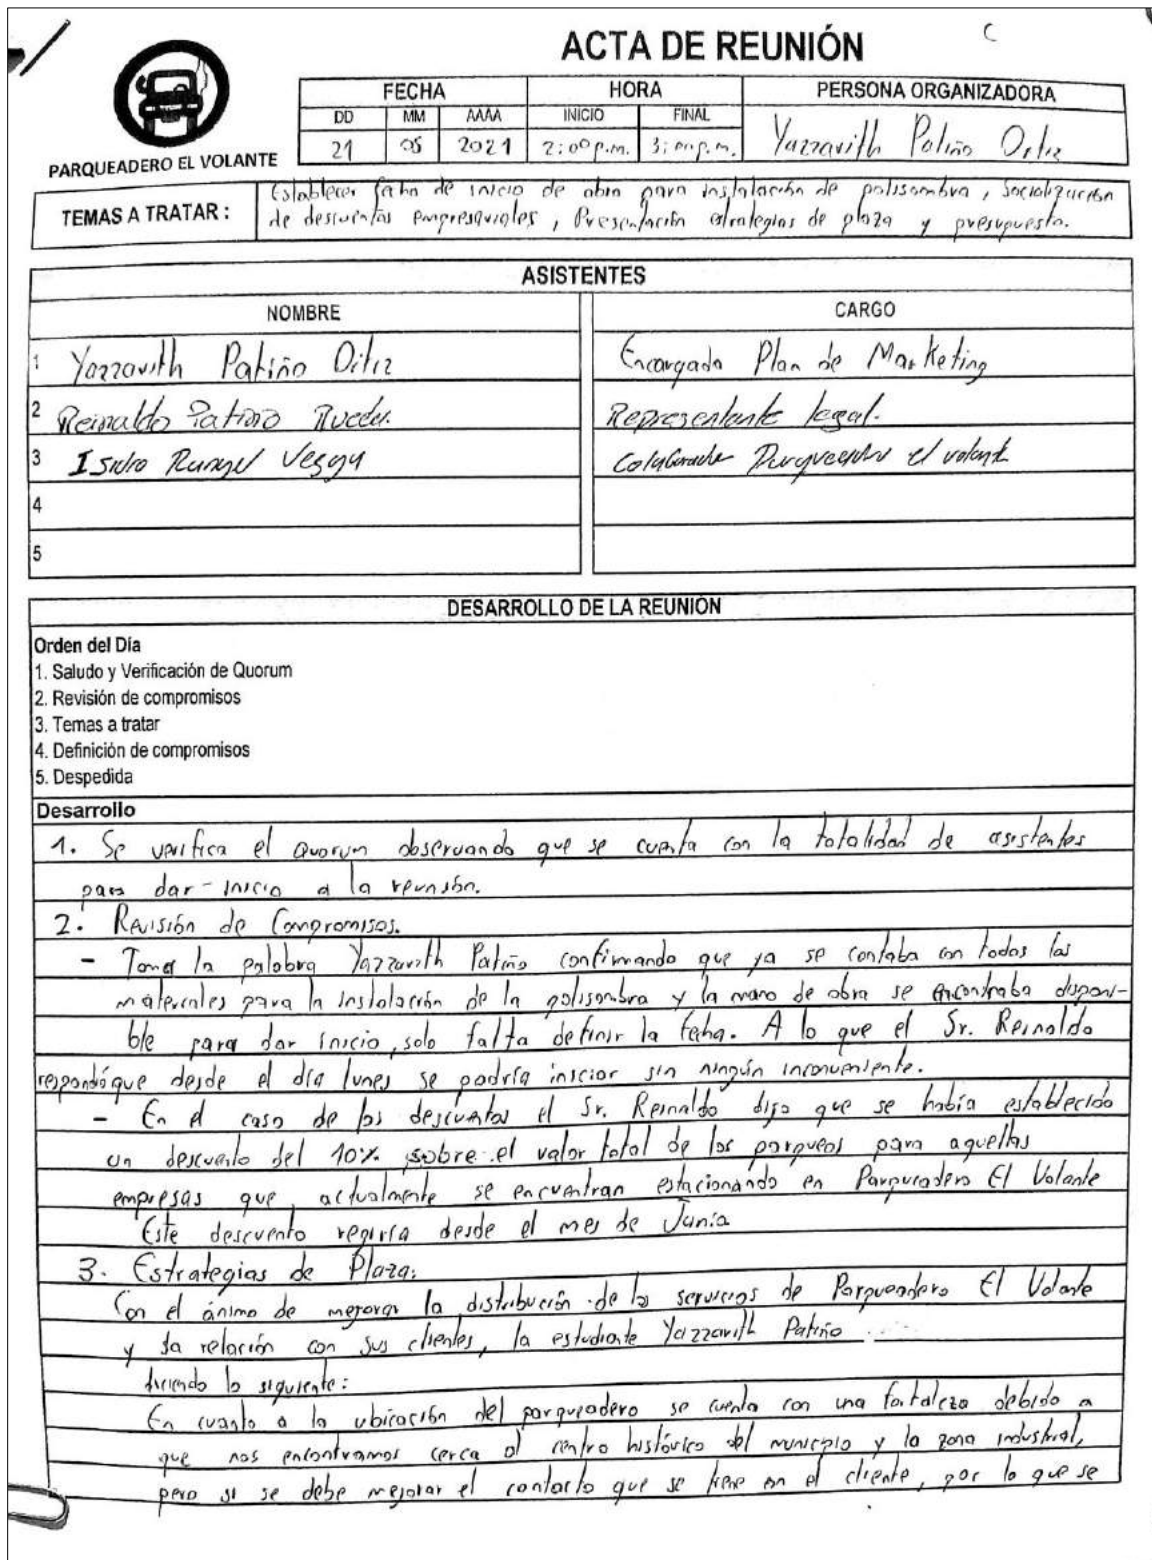 ACTA DE REUNIÓN
PARQUEADERO EL VOLANTE
FECHA HORA PERSONA ORGANIZADORA
DD MM AAAA INICIO FINAL
21 05 2021 2:00 p.m. 3:00 p.m. Yazzavith Patiño Ortiz
TEMAS A TRATAR :
Establecer fecha de inicio de obra para instalación de polisombra, Socialización
de descuentos empresariales, Presentación estrategias de plaza y presupuesto.
ASISTENTES
NOMBRE CARGO
1 Yazzavith Patiño Ortiz Encargada Plan de Marketing
2 Reinaldo Patiño Rueda. Representante legal.
3 Isidro Rangel Vesga Colaborador Parqueadero el volante
4
5
DESARROLLO DE LA REUNIÓN
Orden del Día
1. Saludo y Verificación de Quorum
2. Revisión de compromisos
3. Temas a tratar
4. Definición de compromisos
5. Despedida
Desarrollo
1. Se verifica el Quorum observando que se cuenta con la totalidad de asistentes
para dar inicio a la reunión.
2. Revisión de Compromisos.
- Toma la palabra Yazzavith Patiño confirmando que ya se contaba con todos los
materiales para la instalación de la polisombra y la mano de obra se encontraba disponi-
ble para dar inicio, solo falta definir la fecha. A lo que el Sr. Reinaldo
respondió que desde el día lunes se podría iniciar sin ningún inconveniente.
- En el caso de los descuentos el Sr. Reinaldo dijo que se había establecido
un descuento del 10% sobre el valor total de los parqueos para aquellas
empresas que actualmente se encuentran estacionando en Parqueadero El Volante
Este descuento regiría desde el mes de Junio
3. Estrategias de Plaza:
Con el ánimo de mejorar la distribución de los servicios de Parqueadero El Volante
y la relación con sus clientes, la estudiante Yazzavith Patiño
diciendo lo siguiente:
En cuanto a la ubicación del parqueadero se cuenta con una fortaleza debido a
que nos encontramos cerca al centro histórico del municipio y la zona industrial,
pero si se debe mejorar el contacto que se tiene con el cliente, por lo que se